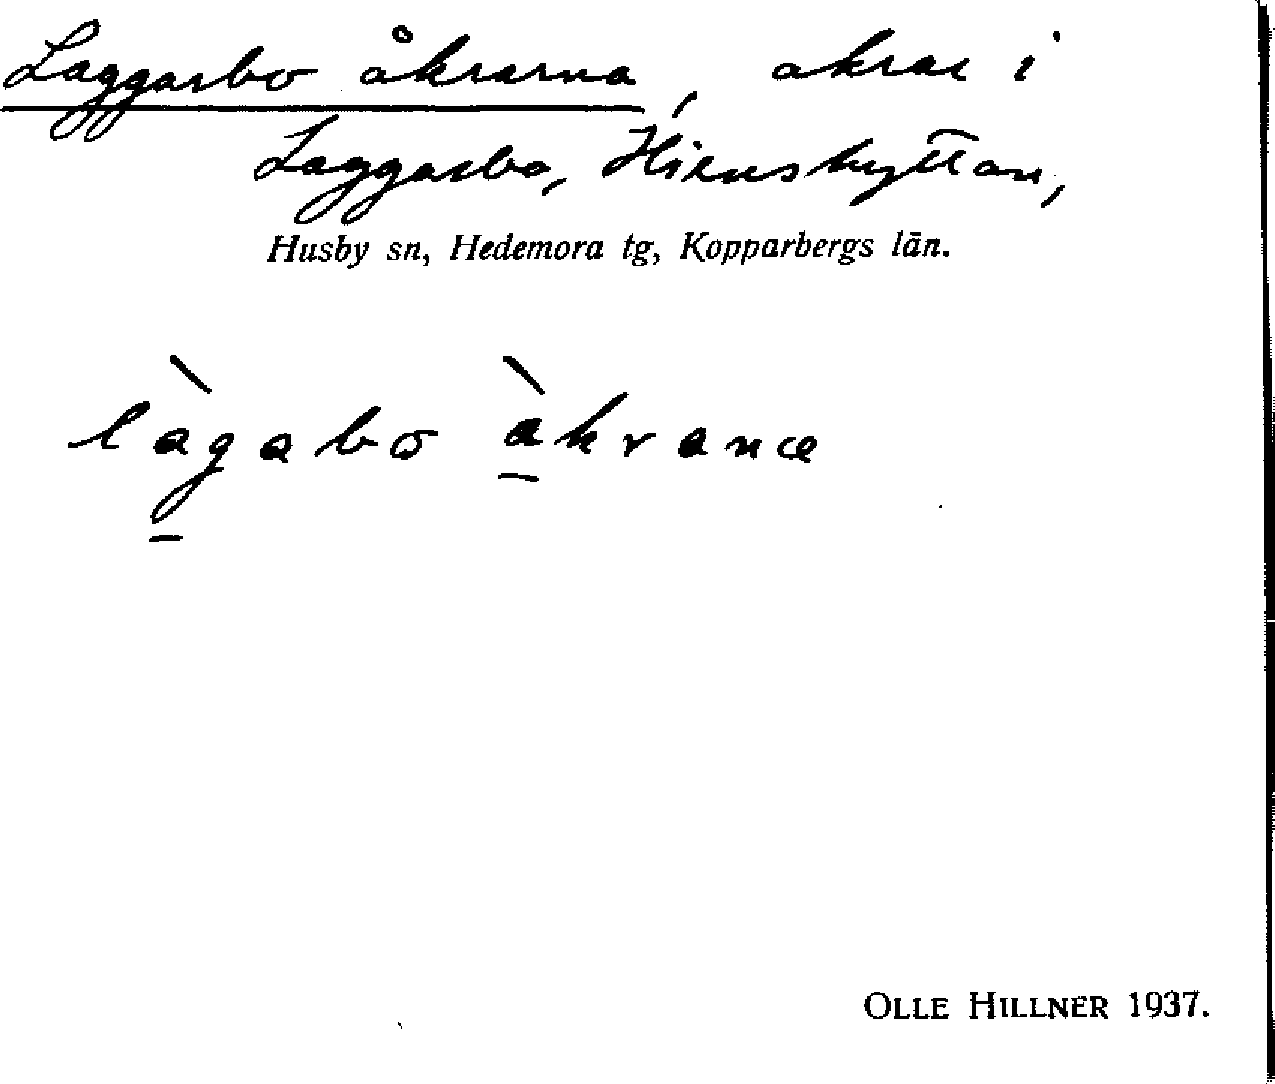 Laggarbo åkrarna, åkrar i
Laggarbo, Hienshyttan,
Husby sn, Hedemora tg, Kopparbergs län.
làgabo àkranæ
OLLE HILLNER 1937.